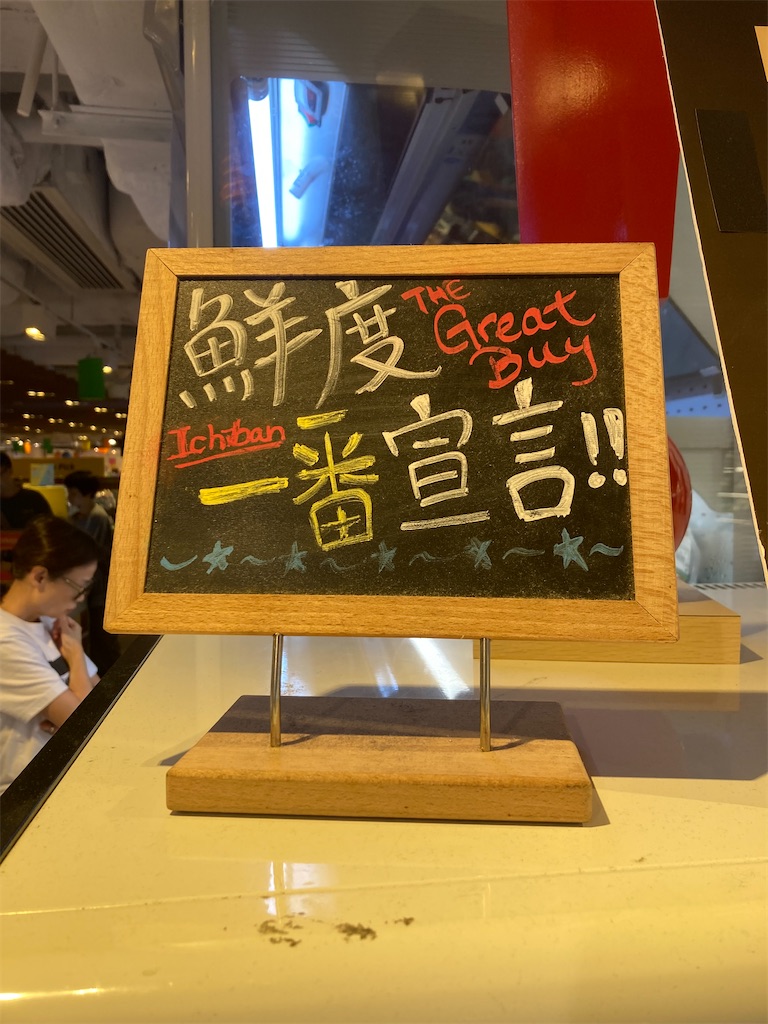 鮮度 THE
Great
Buy
Ichiban
一番宣言!!